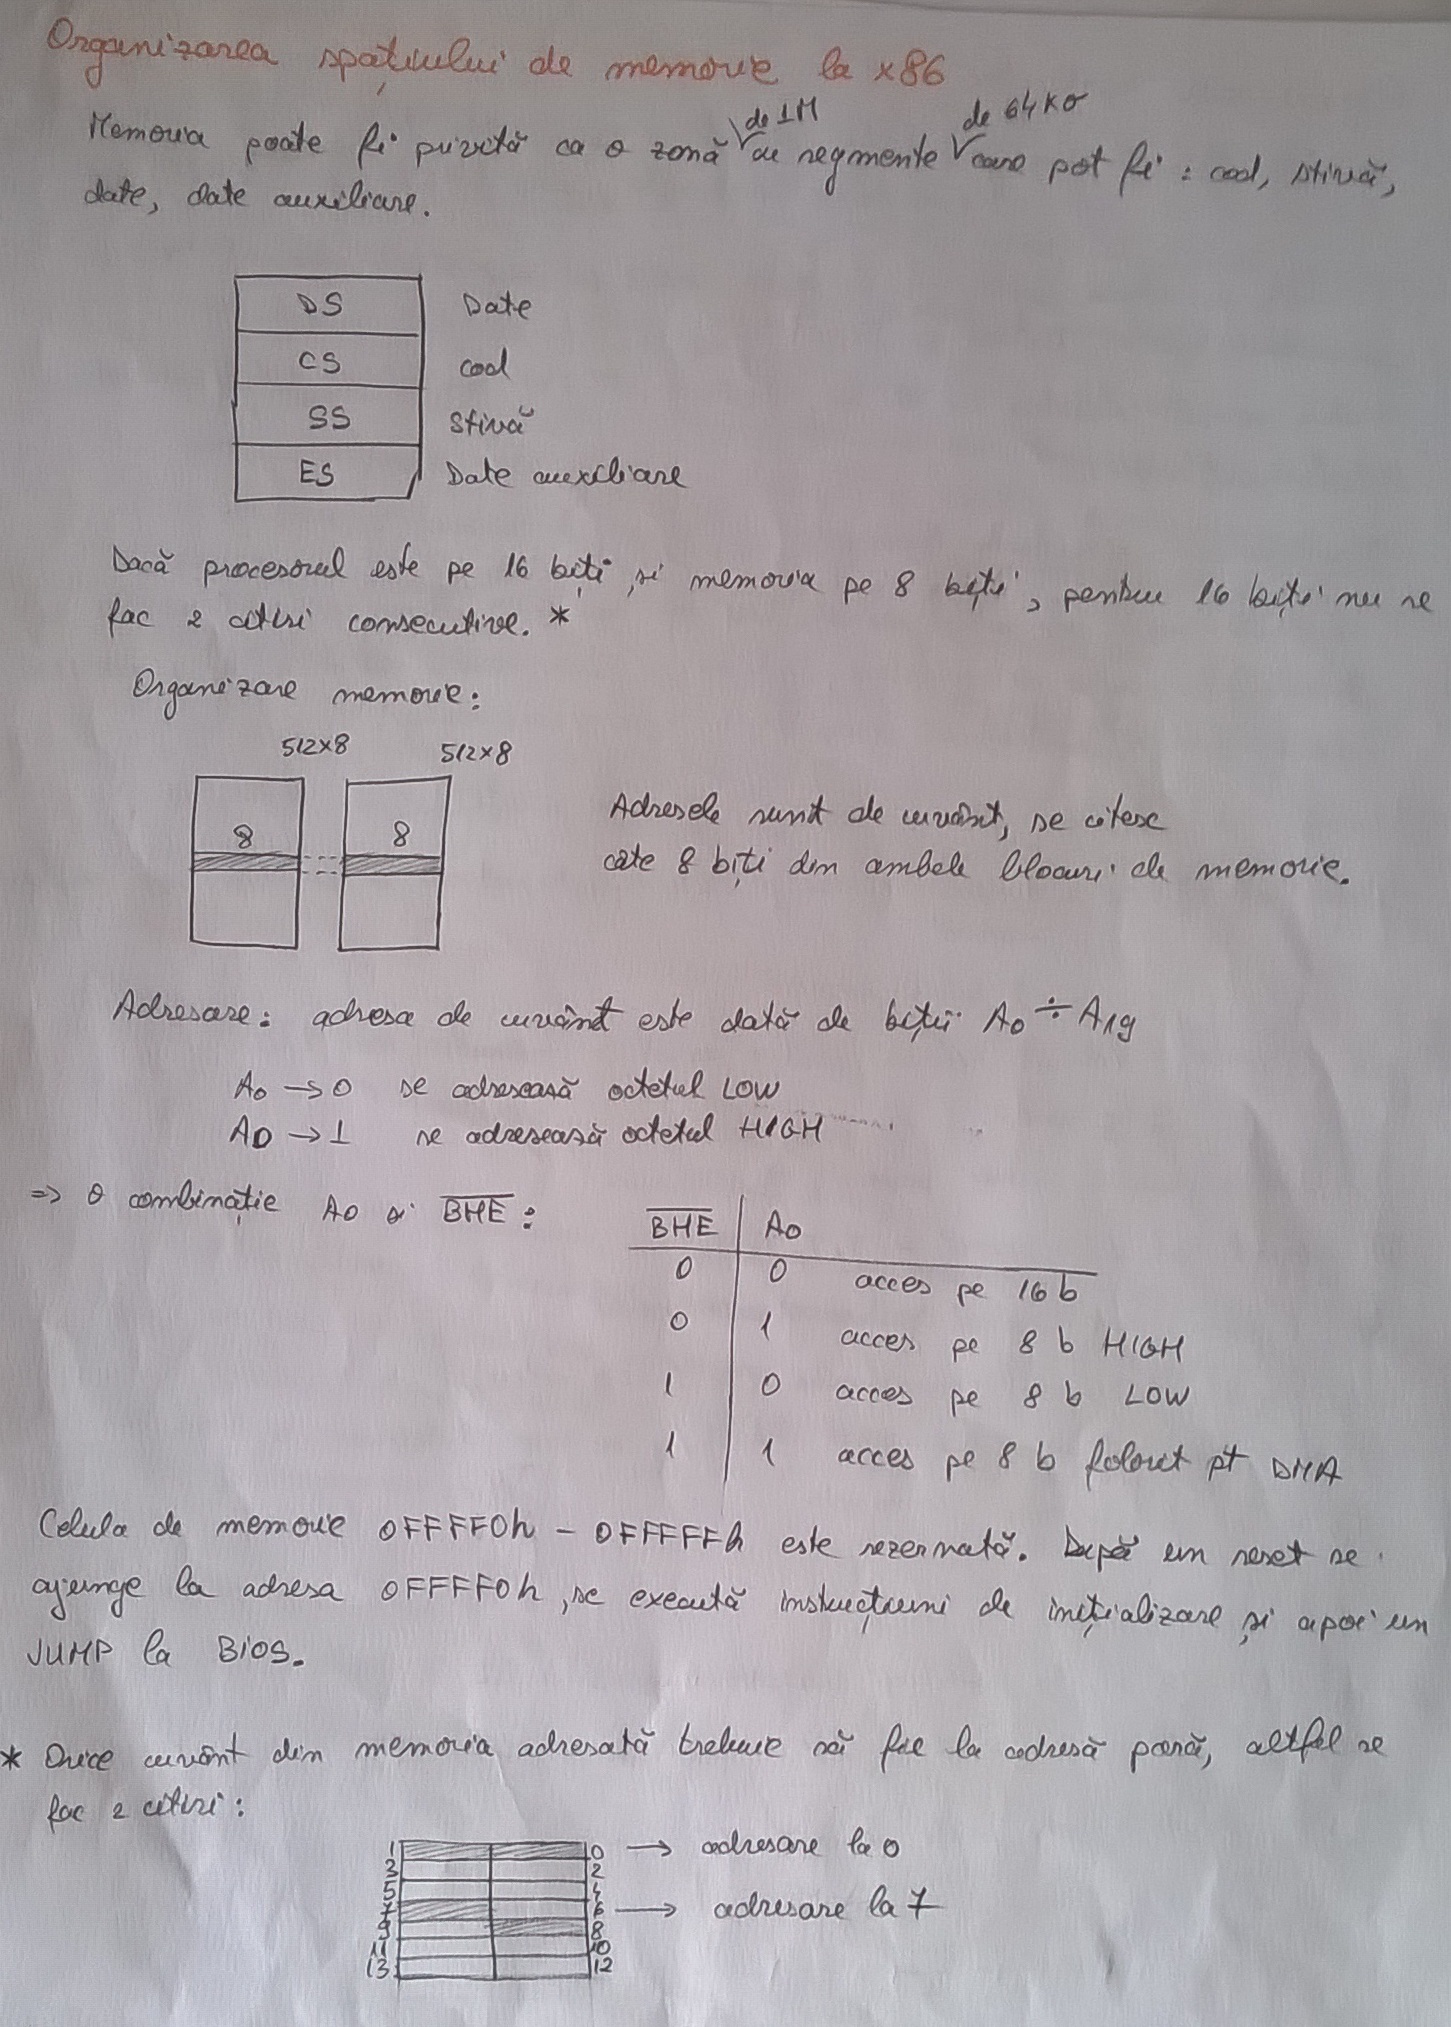 Organizarea spațiului de memorie la x86
de 1M de 64ko
Memoria poate fi privită ca o zonă cu segmente care pot fi : cod, stivă,
date, date auxiliare.
DS Date
CS cod
SS Stivă
ES Date auxiliare
Dacă procesorul este pe 16 biți și memoria pe 8 biți, pentru 16 biți nu se
fac 2 citiri consecutive. *
Organizare memorie:
512x8 512x8
8 8
Adresele sunt de cuvânt, se citesc
câte 8 biți din ambele blocuri de memorie.
Adresare: adresa de cuvânt este dată de biții A0 ÷ A19
A0 → 0 se adresează octetul LOW
A0 → 1 se adresează octetul HIGH
=> O combinație A0 și B̅H̅E̅ :
B̅H̅E̅ A0
0 0 acces pe 16 b
0 1 acces pe 8 b HIGH
1 0 acces pe 8 b LOW
1 1 acces pe 8 b folosit pt DMA
Celula de memorie 0FFFF0h - 0FFFFFh este rezervată. După un reset se
ajunge la adresa 0FFFF0h, se execută instrucțiuni de inițializare și apoi un
JUMP la BIOS.
* Orice cuvânt din memoria adresată trebuie să fie la adresă pară, altfel se
fac 2 citiri:
1 0 → adresare la 0
3 2
5 4
7 6 → adresare la 7
9 8
11 10
13 12